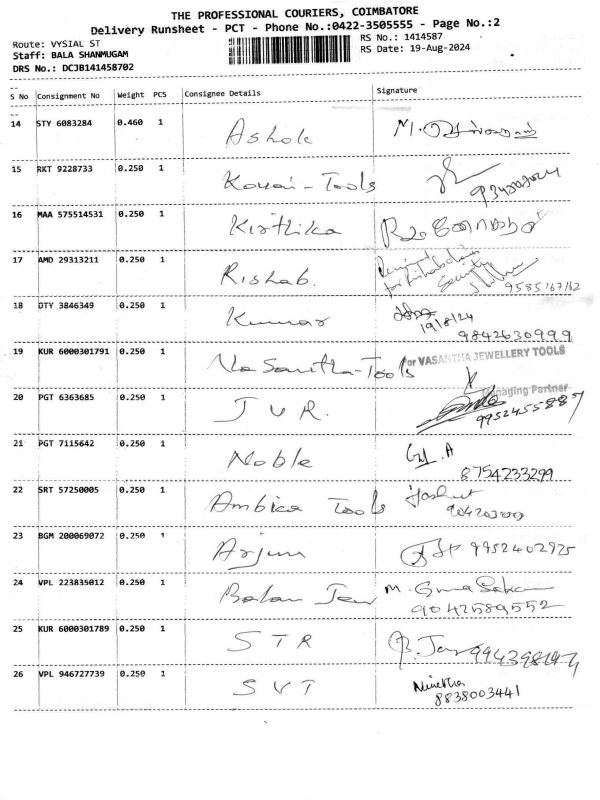 THE PROFESSIONAL COURIERS, COIMBATORE
Delivery Runsheet - PCT - Phone No.:0422-3505555 - Page No.:2
Route: VYSIAL ST RS No.: 1414587
Staff: BALA SHANMUGAM RS Date: 19-Aug-2024
DRS No.: DCJB141458702
S No Consignment No Weight PCS Consignee Details Signature
14 STY 6083284 0.460 1 Ashok M.
15 RKT 9228733 0.250 1 Kovai-Tools
16 MAA 575514531 0.250 1 Kirthika
17 AMD 29313211 0.250 1 Rishab. Security 9585167162
18 DTY 3846349 0.250 1 Kumar 19/8/24
9842630999
19 KUR 6000301791 0.250 1 Vasantha-Tools for VASANTHA JEWELLERY TOOLS
Managing Partner
20 PGT 6363685 0.250 1 JVR.
21 PGT 7115642 0.250 1 Noble
8754233299
22 SRT 57250005 0.250 1 Ambica Tools
23 BGM 200069072 0.250 1 Arjun 9952402925
24 VPL 223835012 0.250 1 Balan M.
9042589552
25 KUR 6000301789 0.250 1 STR
26 VPL 946727739 0.250 1 SVT
8838003441